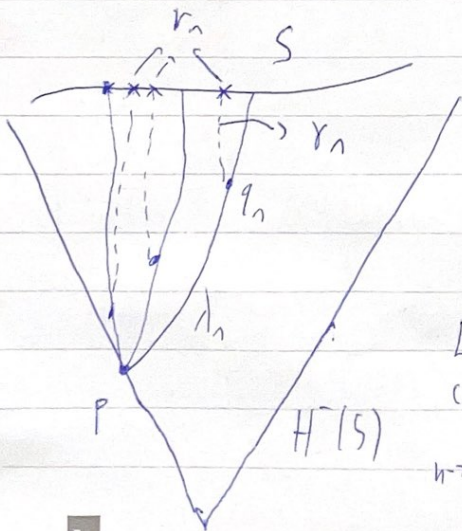 r_n
S
γ_n
q_n
λ_n
P
H⁻(S)